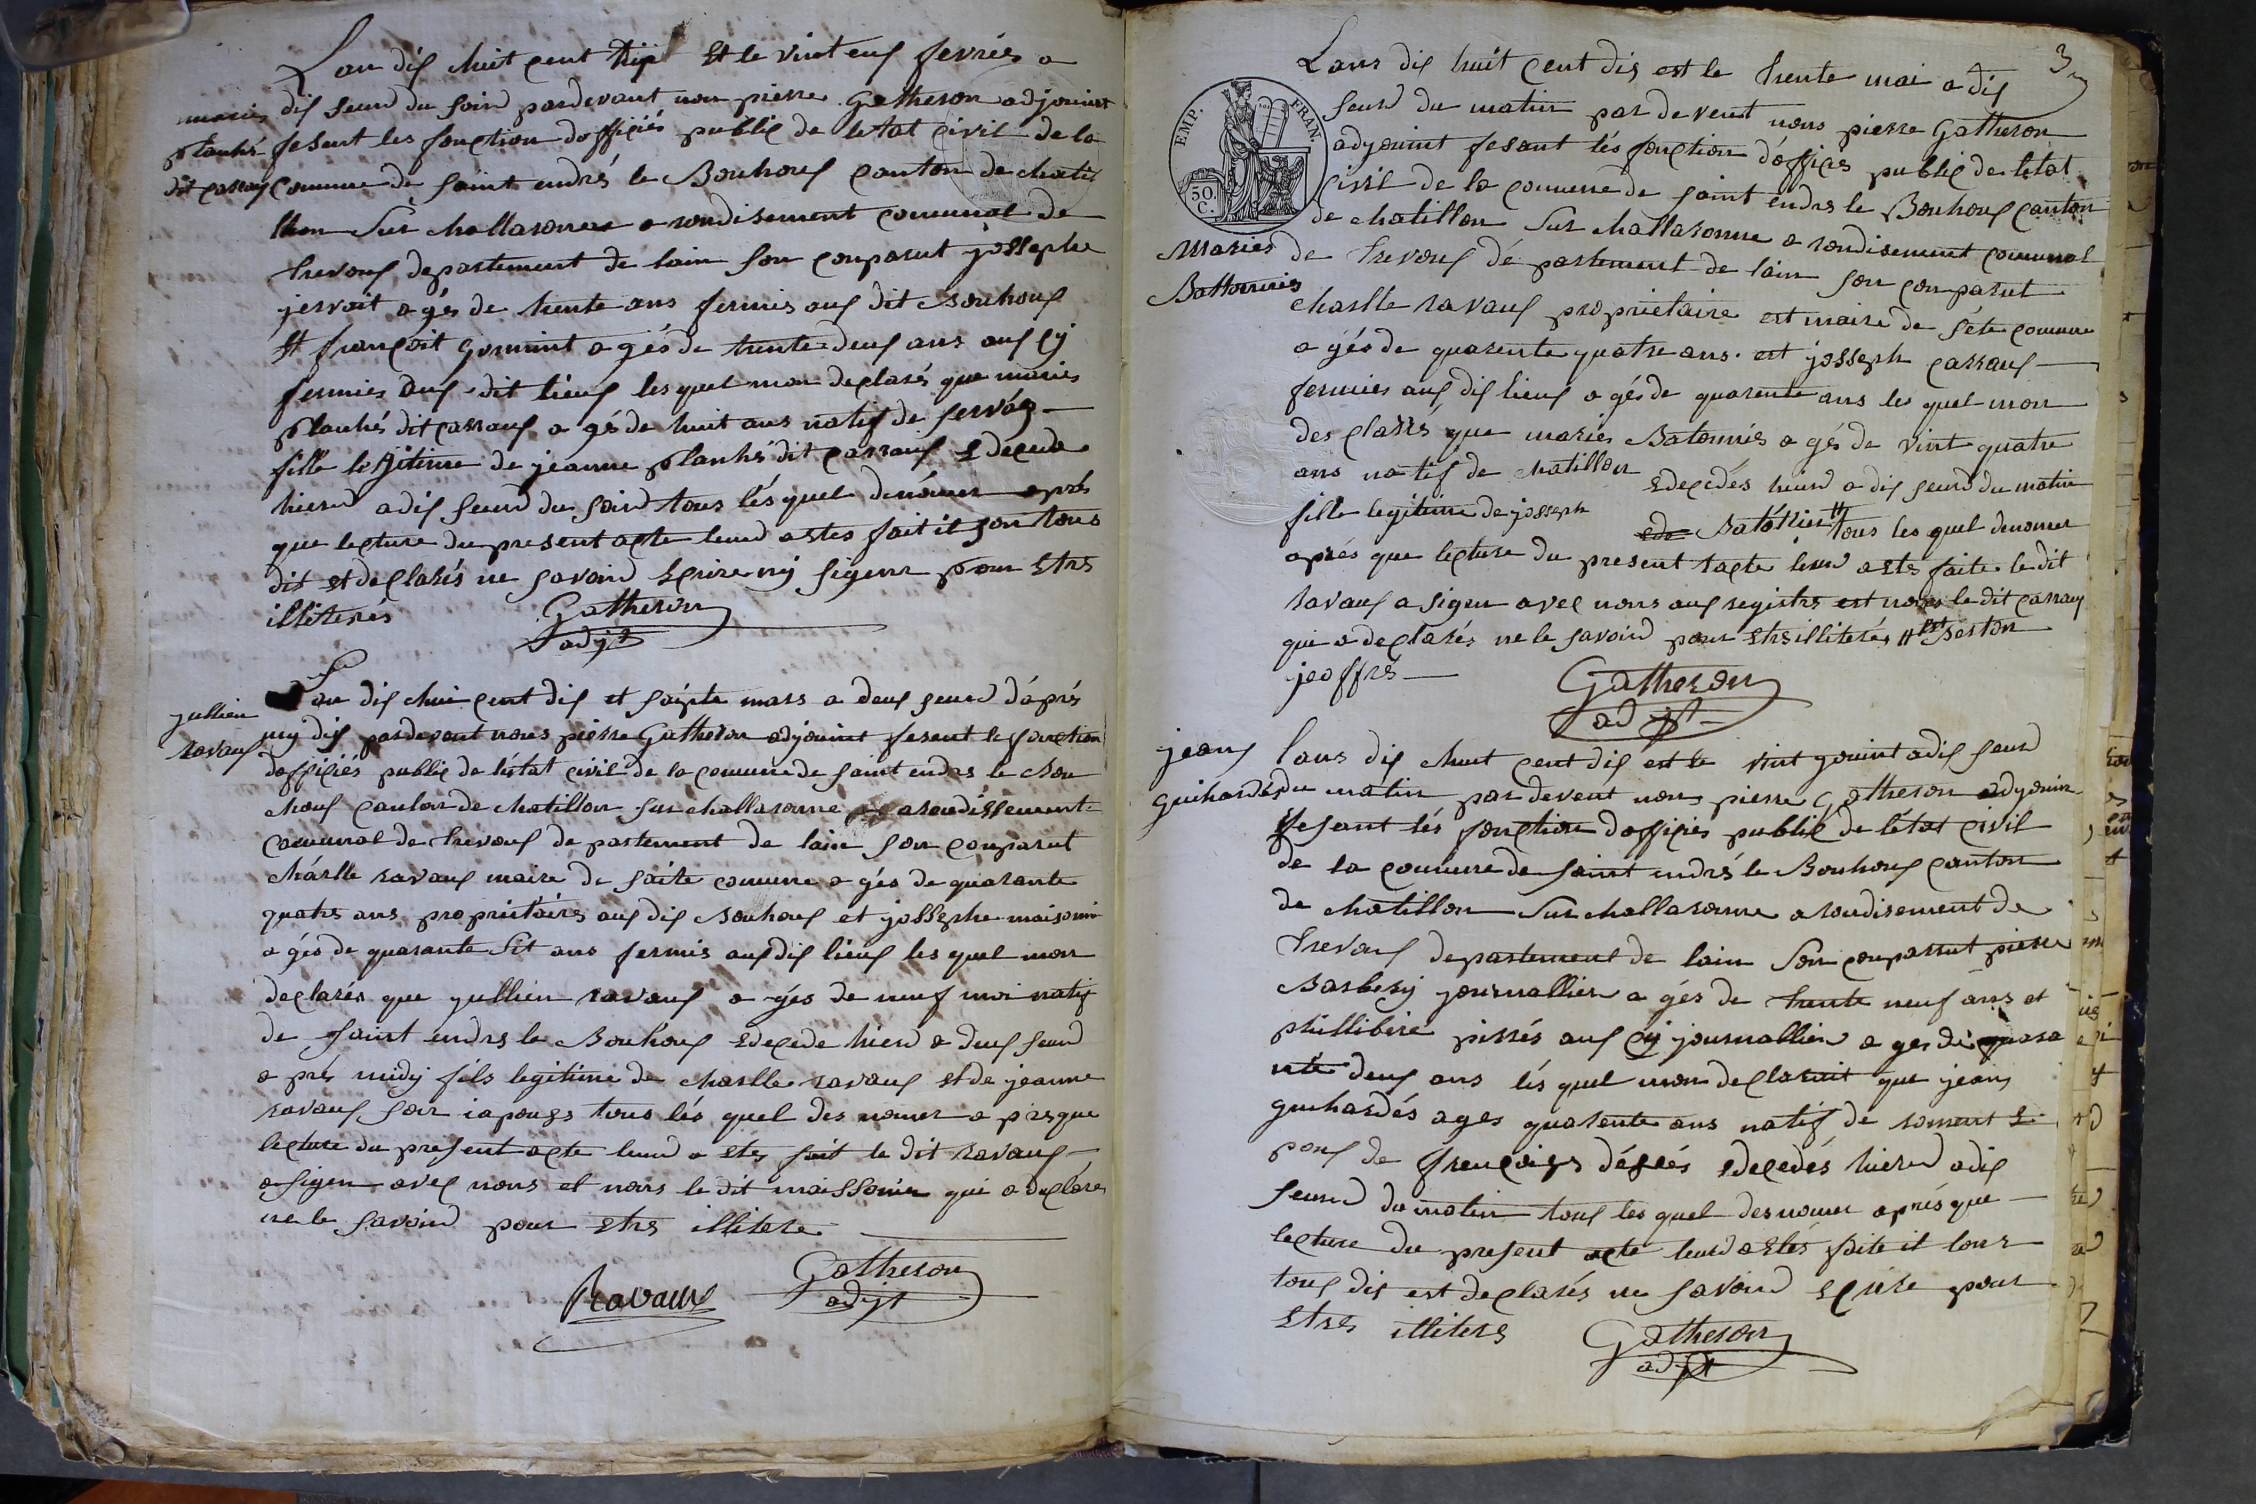 Lan dis huit cent dis et le vint euf fevries a
maries dis heurd du soird pardevant nou pierre Gatheron adjouint
planhé fesent les fonction dofficiés public de letat civil de la
dit carrauf Comune de saint andrés le Bouhouf canton de chati
llon sur challaronne arondisement comunal de
trevouf departement de lain son conparut josseph
jervait agés de trente ans fermis auf dit Bouhouf
et françoit Gomint agés de trente deuf ans auf cy
fermies auf dit lieuf lesquel mon declarés que maries
planhés dit carrauf agés de huit ans natif de servas
fille legitime de jeanne planhé dit carrauf edecede
hierd a dis heurd du soird tous lés quel denómer aprés
que lecture du present acte leurd a etes fait il son tous
dit et declarés ne savoird ecrire ny signer pour etres
illiterés
Gatheron
adjt
jullien
ravauf
Lan dis hui cent dis et saipte mars a deuf heurd d'aprés
my dis pardevant nous pierre Gatheron adjouint fesent le fonction
doffiçiés public de l'état civil de la comune de saint andres le Bou
houf canton de chatillon sur challaronne arondissement
comunal de trevouf departement de lain son conparut
chárlle ravauf maire de saite comune agés de quarante
quatre ans proprietaires auf dis Bouhouf et josseph maisonie
agés de quarante sit ans fermis auf dis lieuf les quel mon
declarés que jullien ravauf agés de neuf moi natif
de saint andres le Bouhouf edecede hierd a deuf heurd
apres midy fils legitime de charlle ravauf et de jeanne
ravauf son iapouzs tous lés quel des nomer apresque
lecture du present acte leurd a etes fait le dit ravauf
a signe avec nous et nons le dit maissonier qui a declare
ne le savoird pour etres illitere
Ravauf
Gatheron
adjt
3
EMP. FRAN.
50 C.
Lans dis huit cent dis est le trente mai a dis
heurd du matin par devent nous pierre Gatheron
adjouint fesant lés fonction d'offices public de létat
civil de la comune de saint andres le Bouhouf canton
de chatillon sur challaronne arondisement comunal
Maries de trevouf département de lain son conparut
Battonnies
charlle ravauf propriétaire est maire de séte comune
agés de quarente quatre ans est josseph carrauf
fermies auf dis lieuf agés de quarente ans les quel mon
des clarés que maries Batonnies agés de vint quatre
ans natif de chatillon edecedés hierd a dis heurd du matin
fille legitime de josseph Batonier tous les quel denomer
aprés que lecture du present racte leurd a ete faite le dit
ravauf a signe avec nous auf registres est nons le dit carrauf
qui a declarés ne le savoird pour etres illiterés # et berton
jeoffrés
Gatheron
adjt
jeans
guihardés
lans dis huit cent dis est le vint jouint a dis heurd
du matin par devent nous pierre Gatheron adjouin
fesant lés fonction doffiçiés public de l'état civil
de la comune de saint andrés le Bouhouf canton
de chatillon sur challaronne arondisement de
trevauf departement de lain son conparrut pierre
Barbery journallier agés de trente neuf ans et
phillibire pissés auf cy journallier agés de quara
nte deuf ans lés quel mon declarait que jeans
guihardés ages quarente ans natif de roment e
pouf de françoizs edecedés hierd a dis
heurd du matin touf les quel des nomer aprés que
lecture du present acte leurd a etés faite il lons
touf dis est declarés ne savoird ecrire pour
etres illiteres
Gatheron
adjt